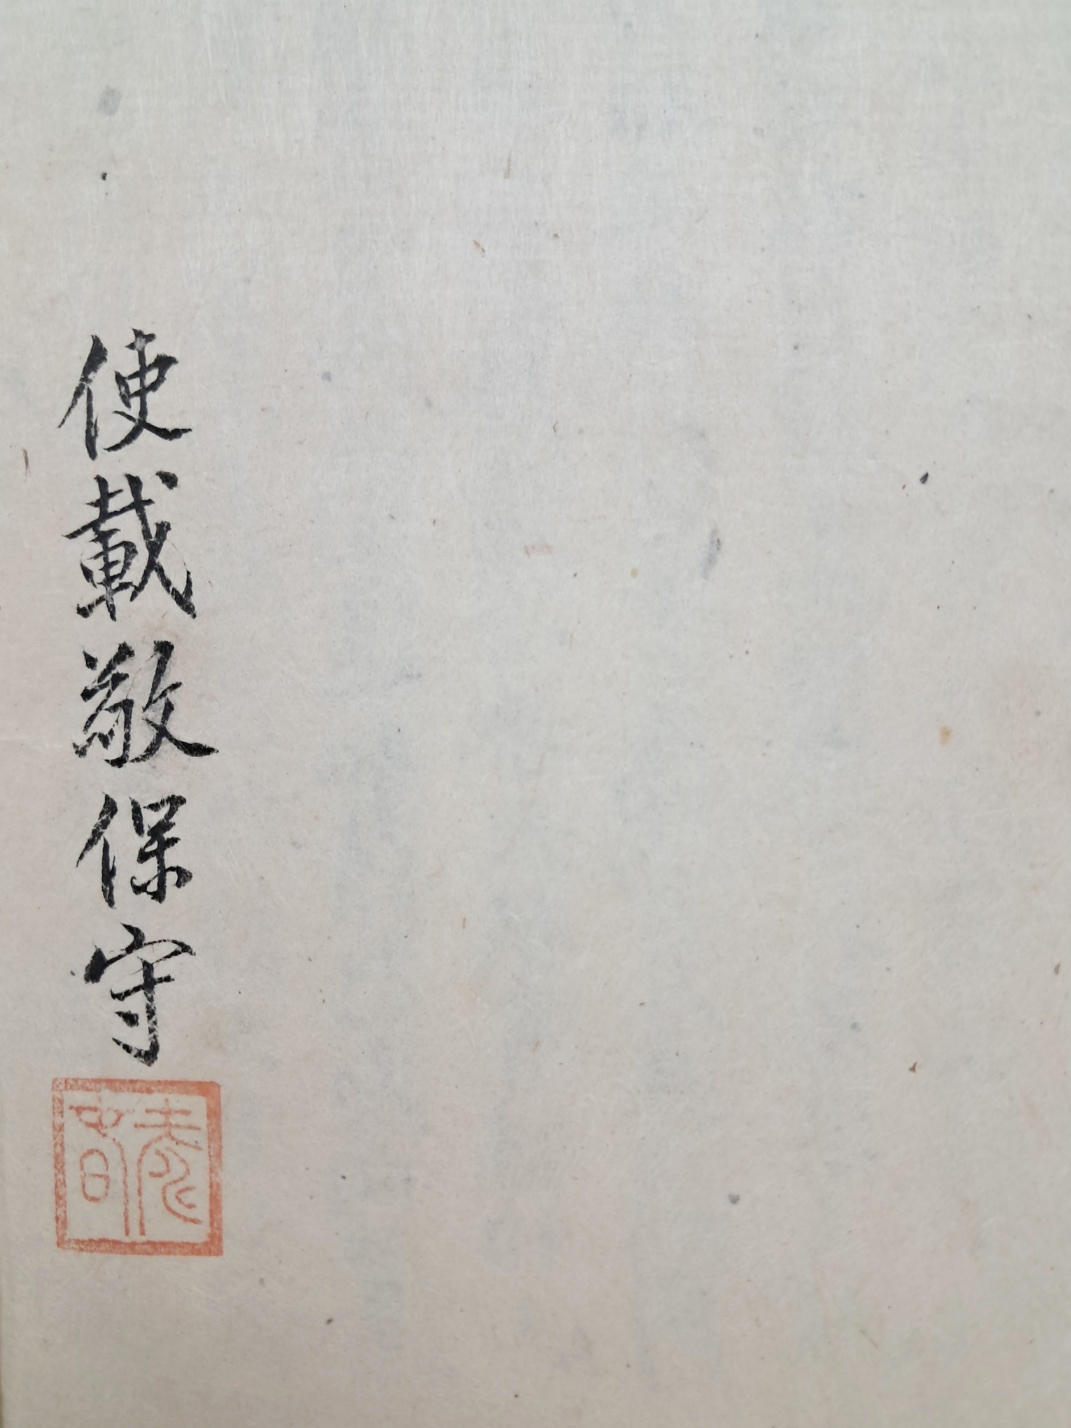 使載敬保守